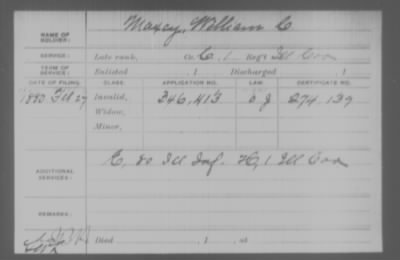 NAME OF SOLDIER: Maxcy, William C
SERVICE: Late rank, Co. C, 1 Reg't Ill Cav
TERM OF SERVICE: Enlisted , 1 Discharged , 1
DATE OF FILING. CLASS. APPLICATION NO. LAW. CERTIFICATE NO.
1880 Feb 27 Invalid, 346,413 274,139
Widow,
Minor,
ADDITIONAL SERVICES: C, 80 Ill Inf. H, 1 Ill Cav
REMARKS:
Died , 1 , at